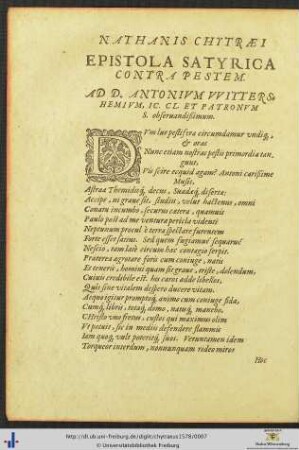 NATHANIS CHYTRÆI
EPISTOLA SATYRICA
CONTRA PESTEM.
AD D. ANTONIVM VVITTERS-
HEMIVM, IC. CL. ET PATRONVM
S. obseruandissimum.
DVm lue pestifera circumdamur vndiq;,
& oras
Nunc etiam nostras pestis primordia tan-
gunt,
Vis scire ecquid agant Antoni carissime
Musis,
Astreæ Themidosq; decus, Suadæq; diserte:
Accipe, ni graue sit. studiis, velut hactenus, omni
Conatu incumbo, securus cætera, quamuis
Paulo post ad me ventura pericla videnti
Neptunum procul è terra spectare furentem
Forte esset satius. Sed quem fugiamué sequarué
Nescio, tam latè circùm hoc contagio serpit.
Præterea ægrotare foris cum coniuge, natis
Et teneris, homini quàm sit graue, triste, dolendum,
Cuiuis credibile est. his caros adde libellos,
Quîs sine vitalem despero ducere vitam.
Acquiescitur promptoq; animo cum coniuge fida,
Cumq; libris, totaq; domo, natisq; manebo,
CHristo vno fretus, custos qui maximus olim
Vt potuit, sic in mediis defendere flammis
Iam quoq; vult poteritq; suos. Veruntamen idem
Torqueor interdum, nonnunquam rideo miros
Hoc
http://dl.ub.uni-freiburg.de/diglit/chytraeus1578/0007
© Universitätsbibliothek Freiburg